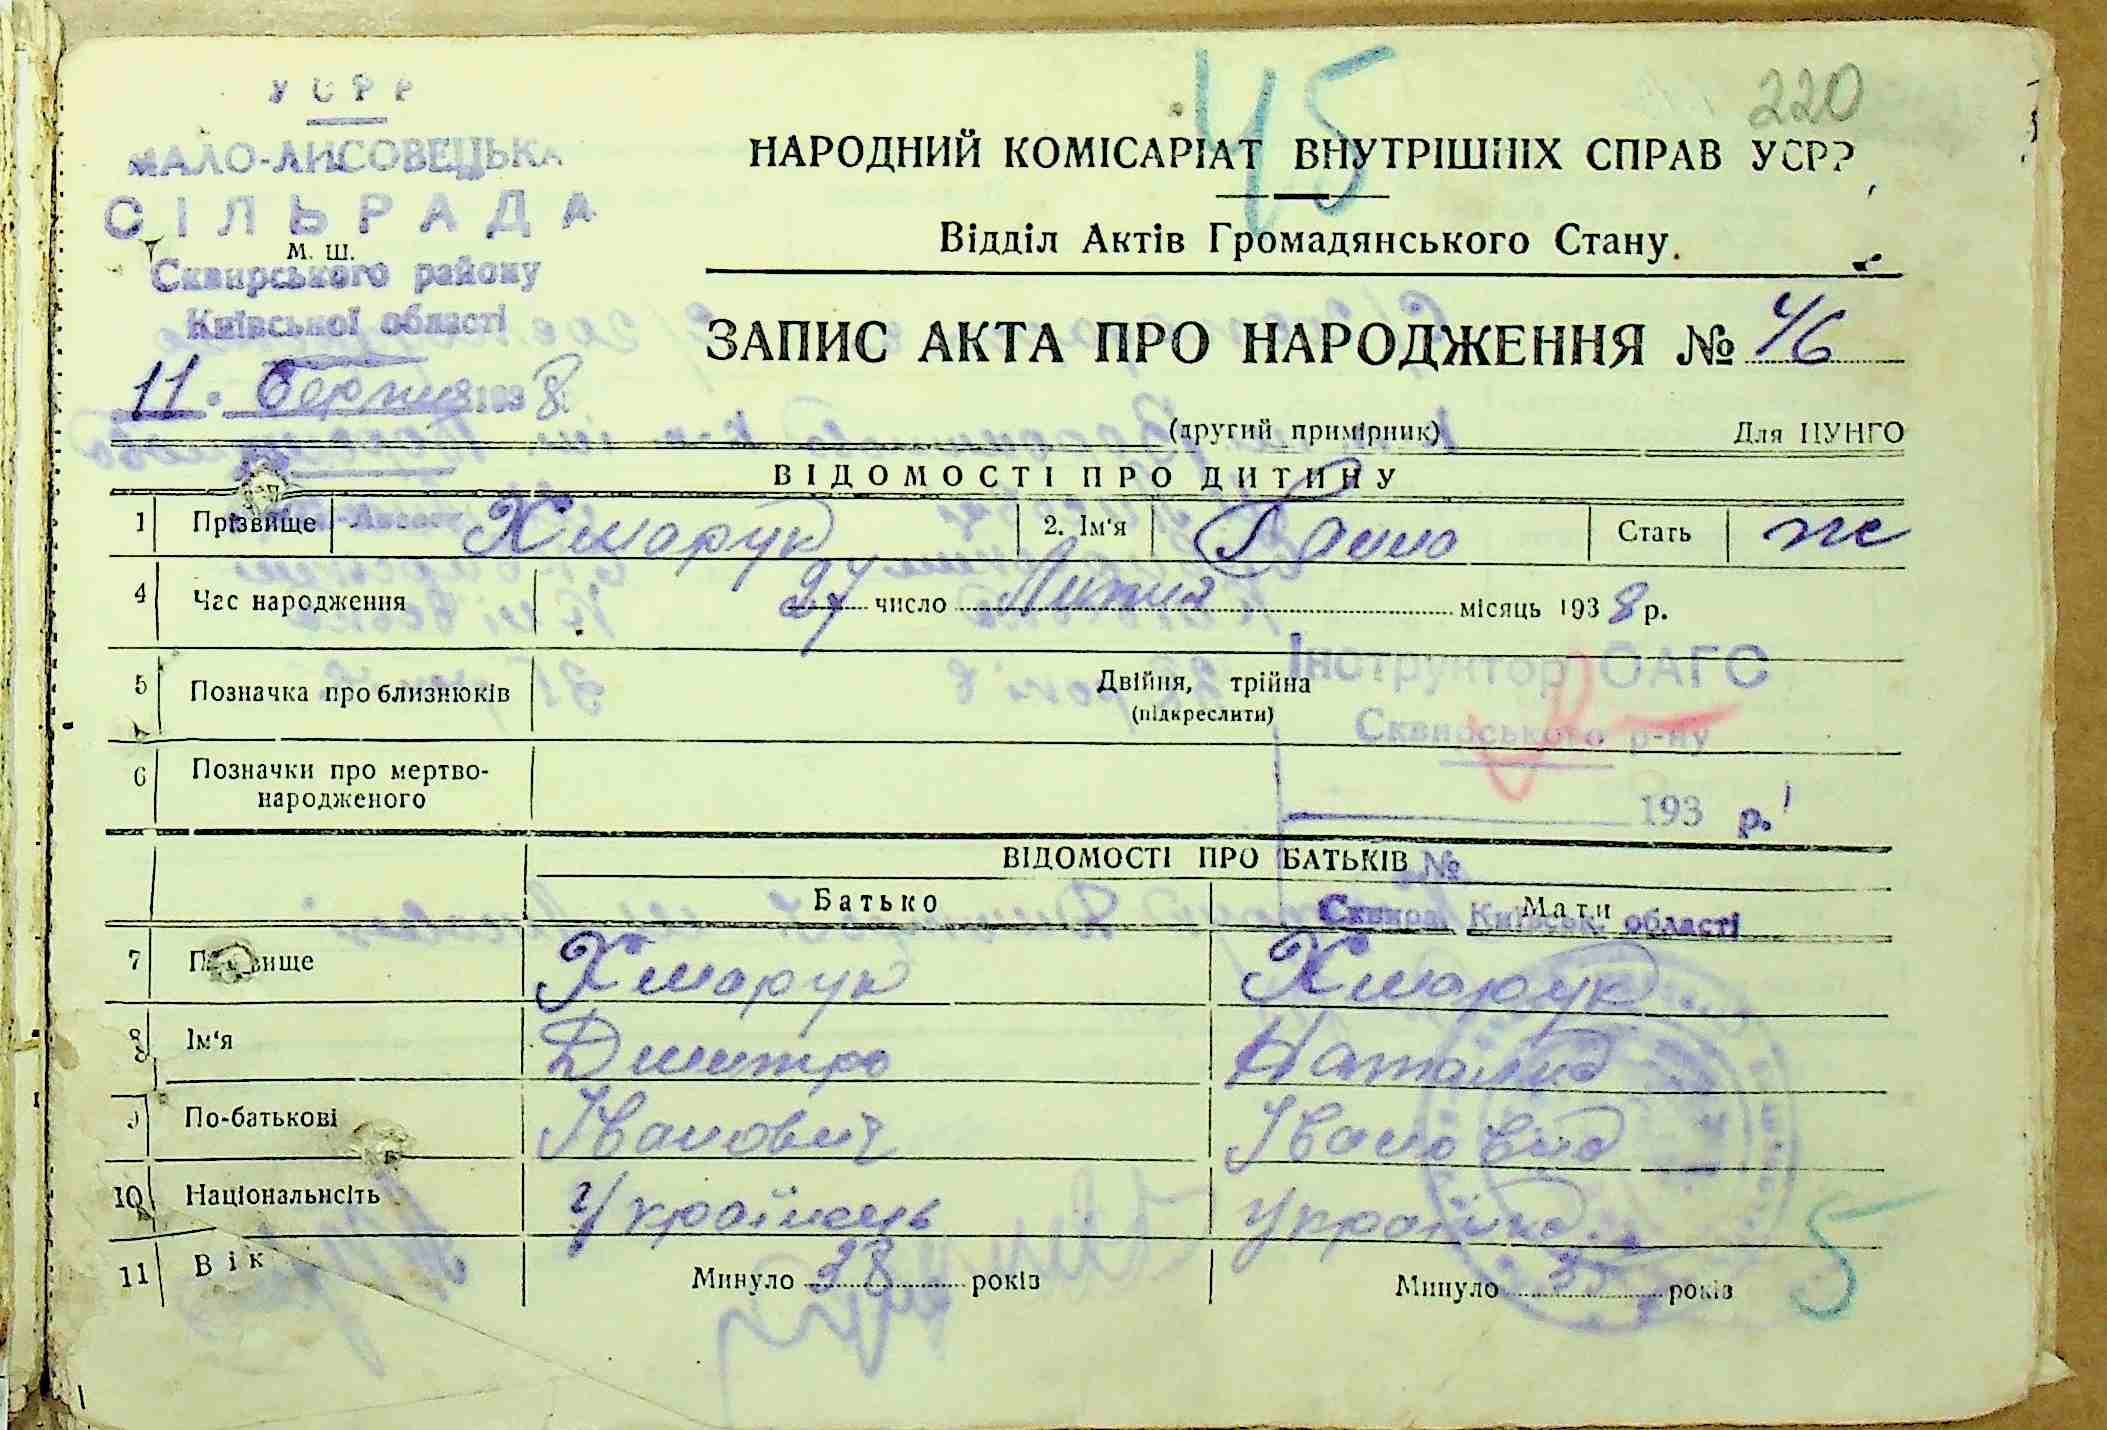 45
220
УСРР
МАЛО-ЛИСОВЕЦЬКА
СІЛЬРАДА
М. Ш.
Сквирського району
Київської області
11. березня 1938
НАРОДНИЙ КОМІСАРІАТ ВНУТРІШНІХ СПРАВ УСРР
Відділ Актів Громадянського Стану.
ЗАПИС АКТА ПРО НАРОДЖЕННЯ № 46
(другий примірник) Для ЦУНГО
ВІДОМОСТІ ПРО ДИТИНУ
1 Прізвище Хмарук 2. Ім'я Ганна Стать ж
4 Час народження 27 число Лютий місяць 1938 р.
5 Позначка про близнюків Двійня, трійна
(підкреслити)
Інструктор ОАГС
Сквирського р-ну
6 Позначки про мертво-
народженого
193 р.
ВІДОМОСТІ ПРО БАТЬКІВ
№
Батько Мати
Сквира, Київськ. області
7 Прізвище Хмарук Хмарук
8 Ім'я Дмитро Наталка
9 По-батькові Іванович Івановна
10 Національність Українець Українка
11 Вік Минуло 28 років Минуло років
5